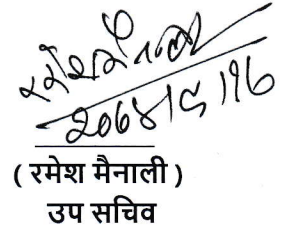 २०७४।९।१७
( रमेश मैनाली )
उप सचिव